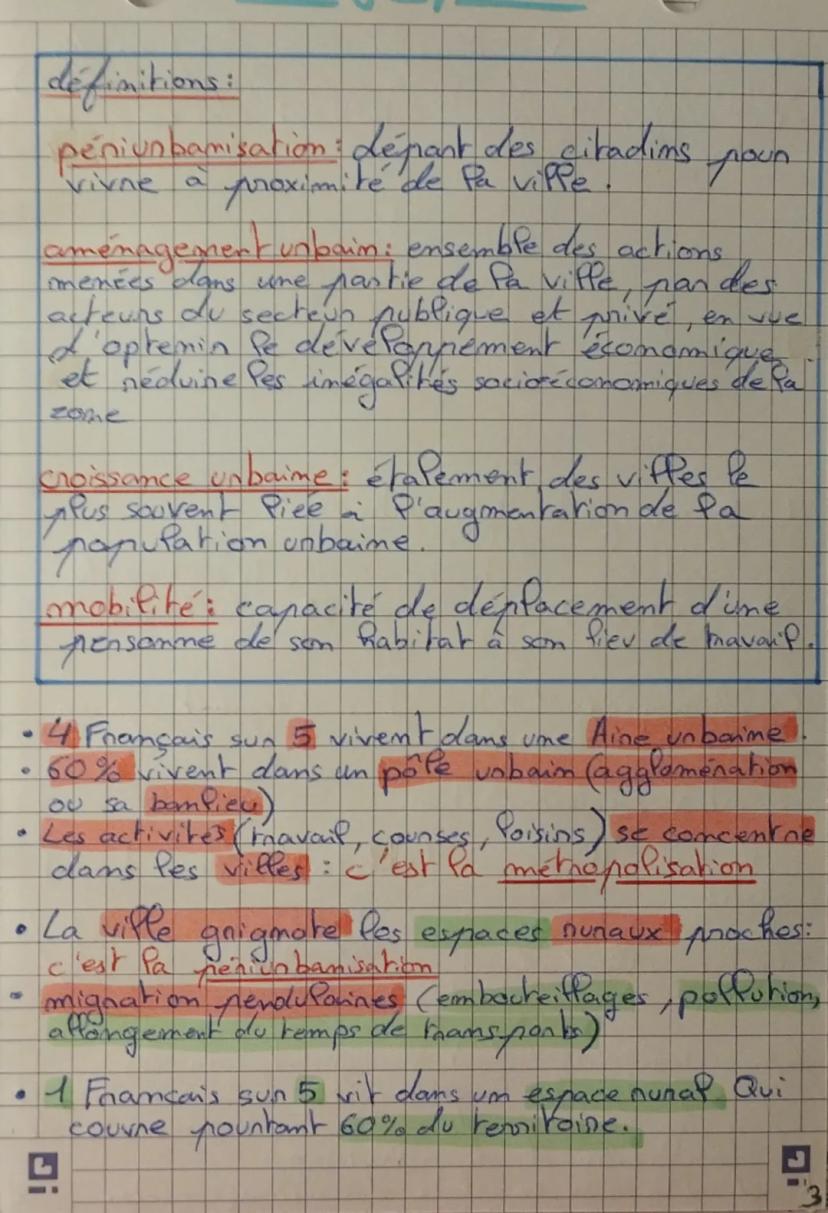 définitions:
périurbanisation: départ des citadins pour
vivre à proximité de la ville.
aménagement urbain: ensemble des actions
menées dans une partie de la ville, par des
acteurs du secteur publique et privé, en vue
d'optemir le développement économique
et réduire les inégalités socioréconomiques de la
zone
croissance urbaine: étalement des villes le
plus souvent liée à l'augmentation de la
population urbaine.
mobilité: capacité de déplacement d'une
personne de son habitat à son lieu de travail.
• 4 Français sur 5 vivent dans une Aire urbaine.
• 60% vivent dans un pôle urbain (agglomération
ou sa banlieu)
• Les activités (travail, courses, loisins) se concentre
dans les villes : c'est la métropolisation
• La ville grigmote les espaces ruraux proches:
c'est la périurbanisation
• migration pendulaires (embouteillages, pollution,
allongement du temps de transports)
• 1 Francais sur 5 vit dans un espace rural Qui
couvre pourtant 60% du territoire.
3